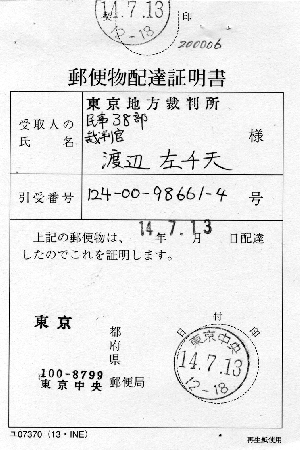 14.7.13
12-18
印
200006
郵便物配達証明書
受取人の氏名
東京地方裁判所
民事38部
裁判官
渡辺 左千夫 様
引受番号 124-00-98661-4 号
上記の郵便物は、14年7月13日配達
したのでこれを証明します。
東京 都府県
100-8799
東京中央 郵便局
日付印
東京中央
14.7.13
12-18
コ07370（13・INE）
再生紙使用